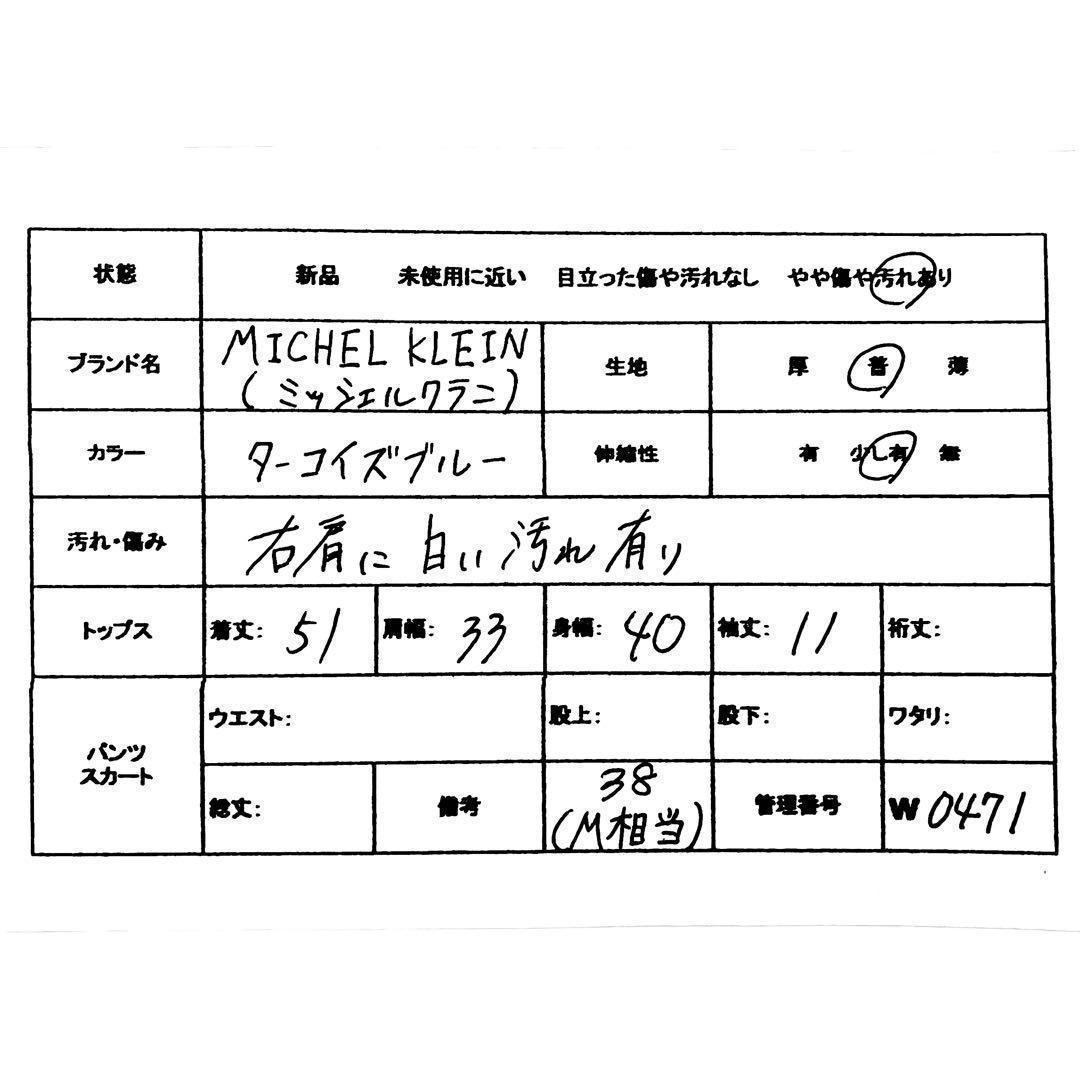 状態 新品 未使用に近い 目立った傷や汚れなし やや傷や汚れあり
ブランド名 MICHEL KLEIN 生地 厚 普 薄
(ミッシェルクラニ)
カラー ターコイズブルー 伸縮性 有 少し有 無
汚れ・傷み 右肩に白い汚れ有り
トップス 着丈: 51 肩幅: 33 身幅: 40 袖丈: 11 裄丈:
パンツ
スカート
ウエスト: 股上: 股下: ワタリ:
総丈: 備考 38 管理番号 W 0471
(M相当)